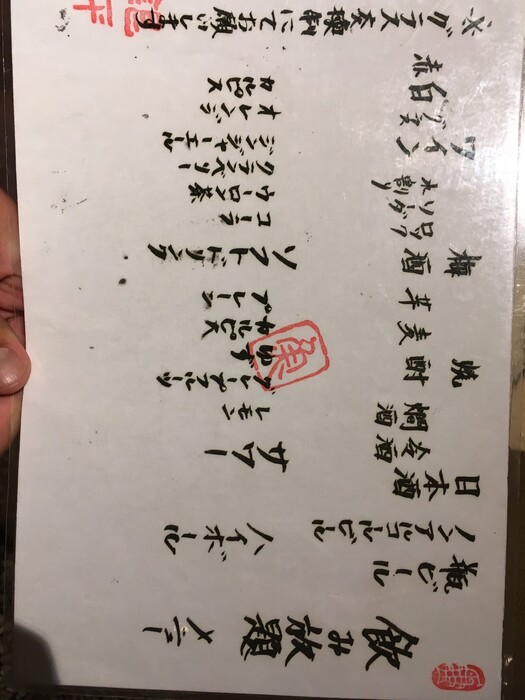 飲み放題メニュー
瓶ビール
ノンアルコールビール
日本酒
冷酒
燗酒
焼酎
麦
芋
梅酒
ロック
ソーダ
水割り
ワイン
グラス
白
赤
ハイボール
サワー
レモン
グレープフルーツ
ゆず
カルピス
プレーン
ソフトドリンク
コーラ
ウーロン茶
クランベリー
ジンジャーエール
オレンジ
カルピス
※グラス交換制にてお願いします